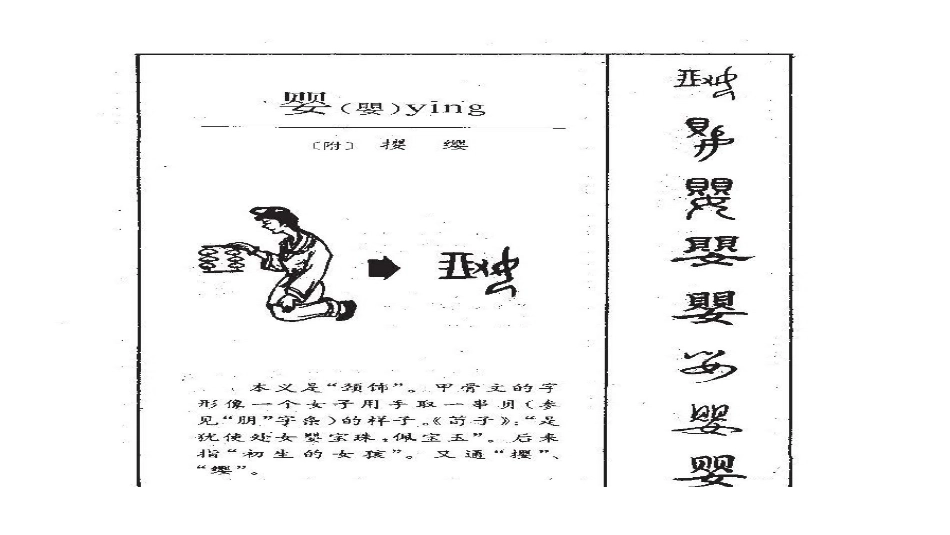 婴(嬰)ying
〔附〕 撄 缨
本义是“颈饰”。甲骨文的字
形像一个女子用手取一串贝(参
见“朋”字条)的样子。《荀子》:“是
犹使处女婴宝珠,佩宝玉”。后来
指“初生的女孩”。又通“撄”、
“缨”。
嬰
嬰
嬰
婴
婴